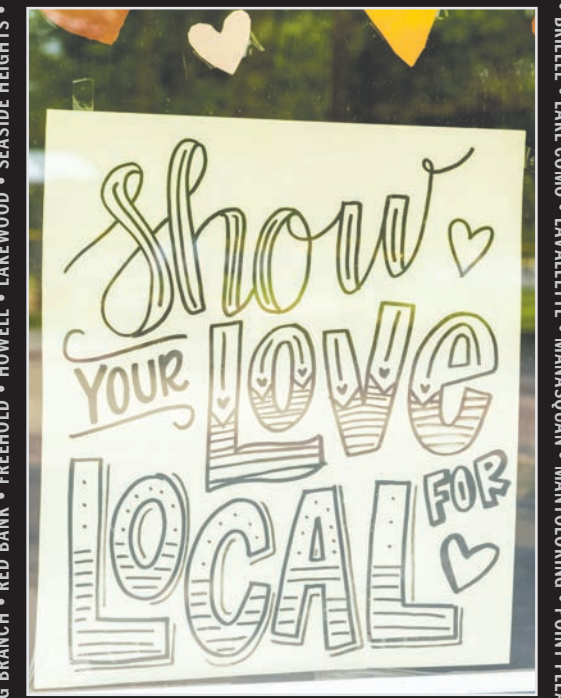 BRANCH • RED BANK • FREEHOLD • HOWELL • LAKEWOOD • SEASIDE HEIGHTS •
Show
YOUR Love
FOR
LOCAL
• BRIELLE • LAKE COMO • LAVALLETTE • MANASQUAN • MANTOLOKING • POINT